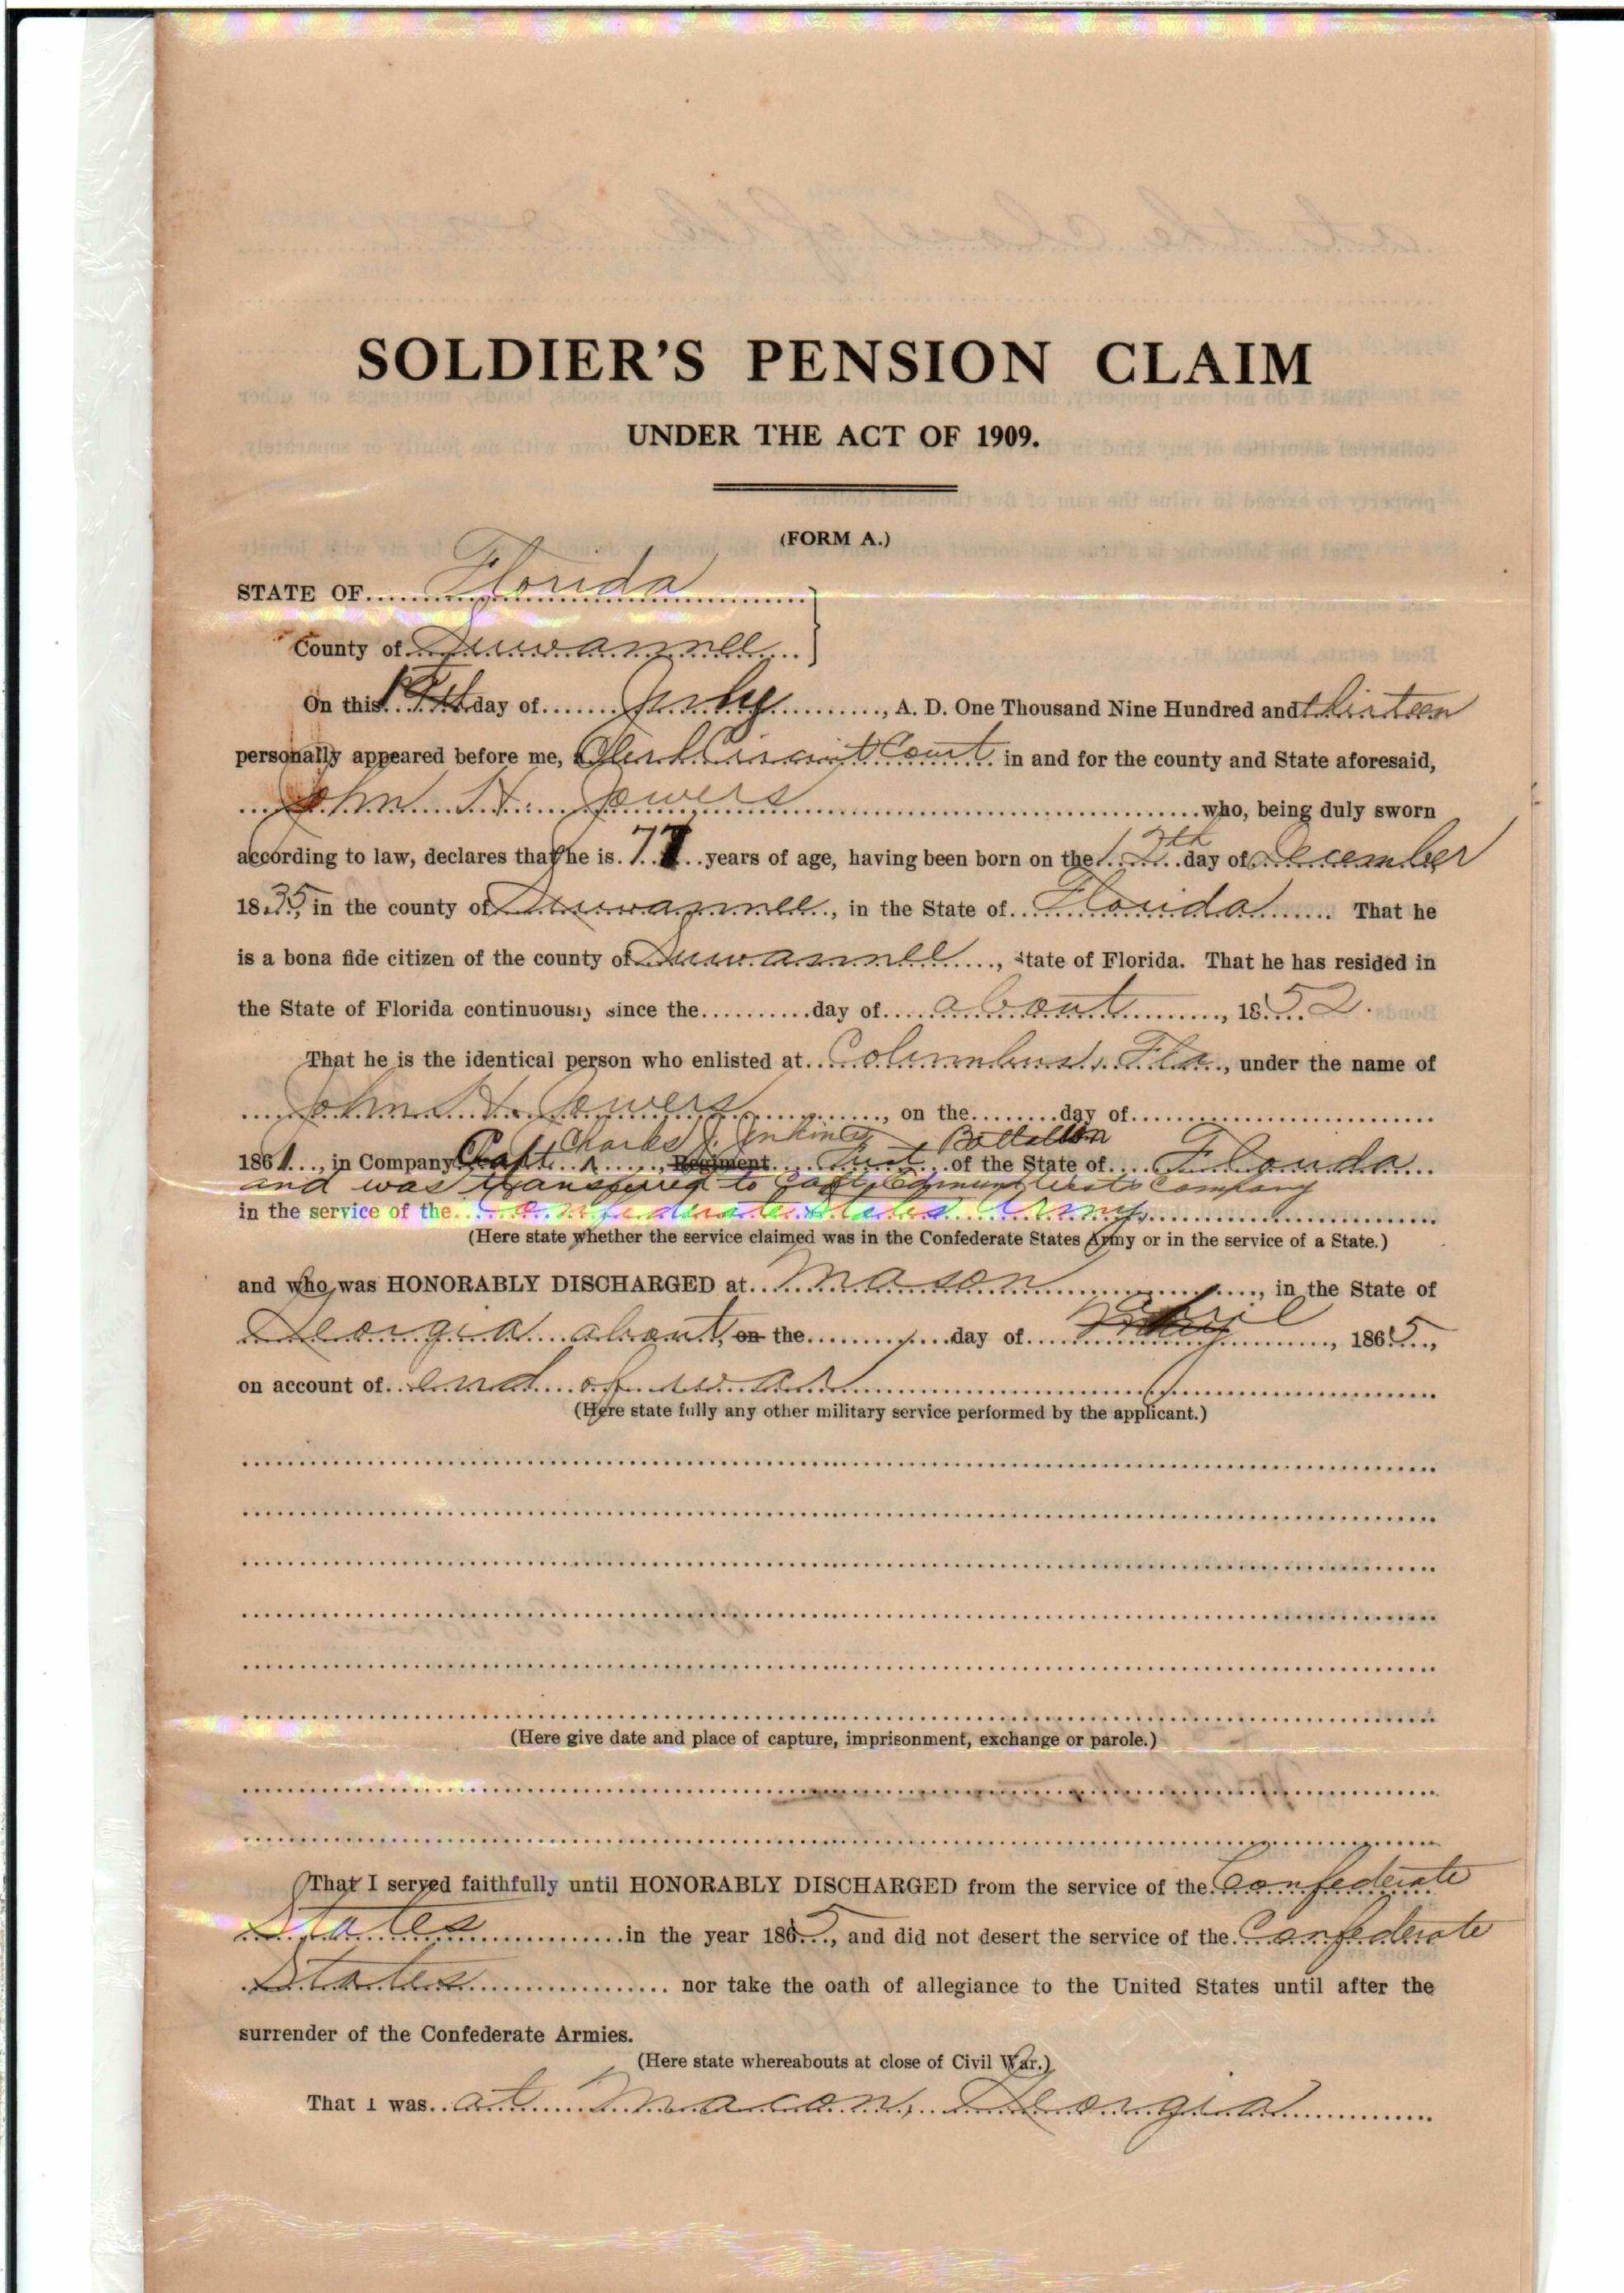 SOLDIER'S PENSION CLAIM
UNDER THE ACT OF 1909.
(FORM A.)
STATE OF Florida
County of Suwannee
On this day of July, A. D. One Thousand Nine Hundred and thirteen
personally appeared before me, Clerk Circuit Court in and for the county and State aforesaid,
John H. Sowers who, being duly sworn
according to law, declares that he is 77 years of age, having been born on the 12th day of December
1835, in the county of Suwannee, in the State of Florida That he
is a bona fide citizen of the county of Suwannee, State of Florida. That he has resided in
the State of Florida continuously since the day of about, 1852.
That he is the identical person who enlisted at Columbus, Fla, under the name of
John H. Sowers, on the day of
Charles J. Jenkins Battallion
1861, in Company Capt., Regiment First of the State of Florida
and was transferred to Capt. Edmund Wests Company
in the service of the Confederate States Army
(Here state whether the service claimed was in the Confederate States Army or in the service of a State.)
and who was HONORABLY DISCHARGED at Mason, in the State of
Georgia about, on the day of April, 1865,
on account of end of war
(Here state fully any other military service performed by the applicant.)
(Here give date and place of capture, imprisonment, exchange or parole.)
That I served faithfully until HONORABLY DISCHARGED from the service of the Confederate
States in the year 1865, and did not desert the service of the Confederate
States nor take the oath of allegiance to the United States until after the
surrender of the Confederate Armies.
(Here state whereabouts at close of Civil War.)
That I was at Macon, Georgia